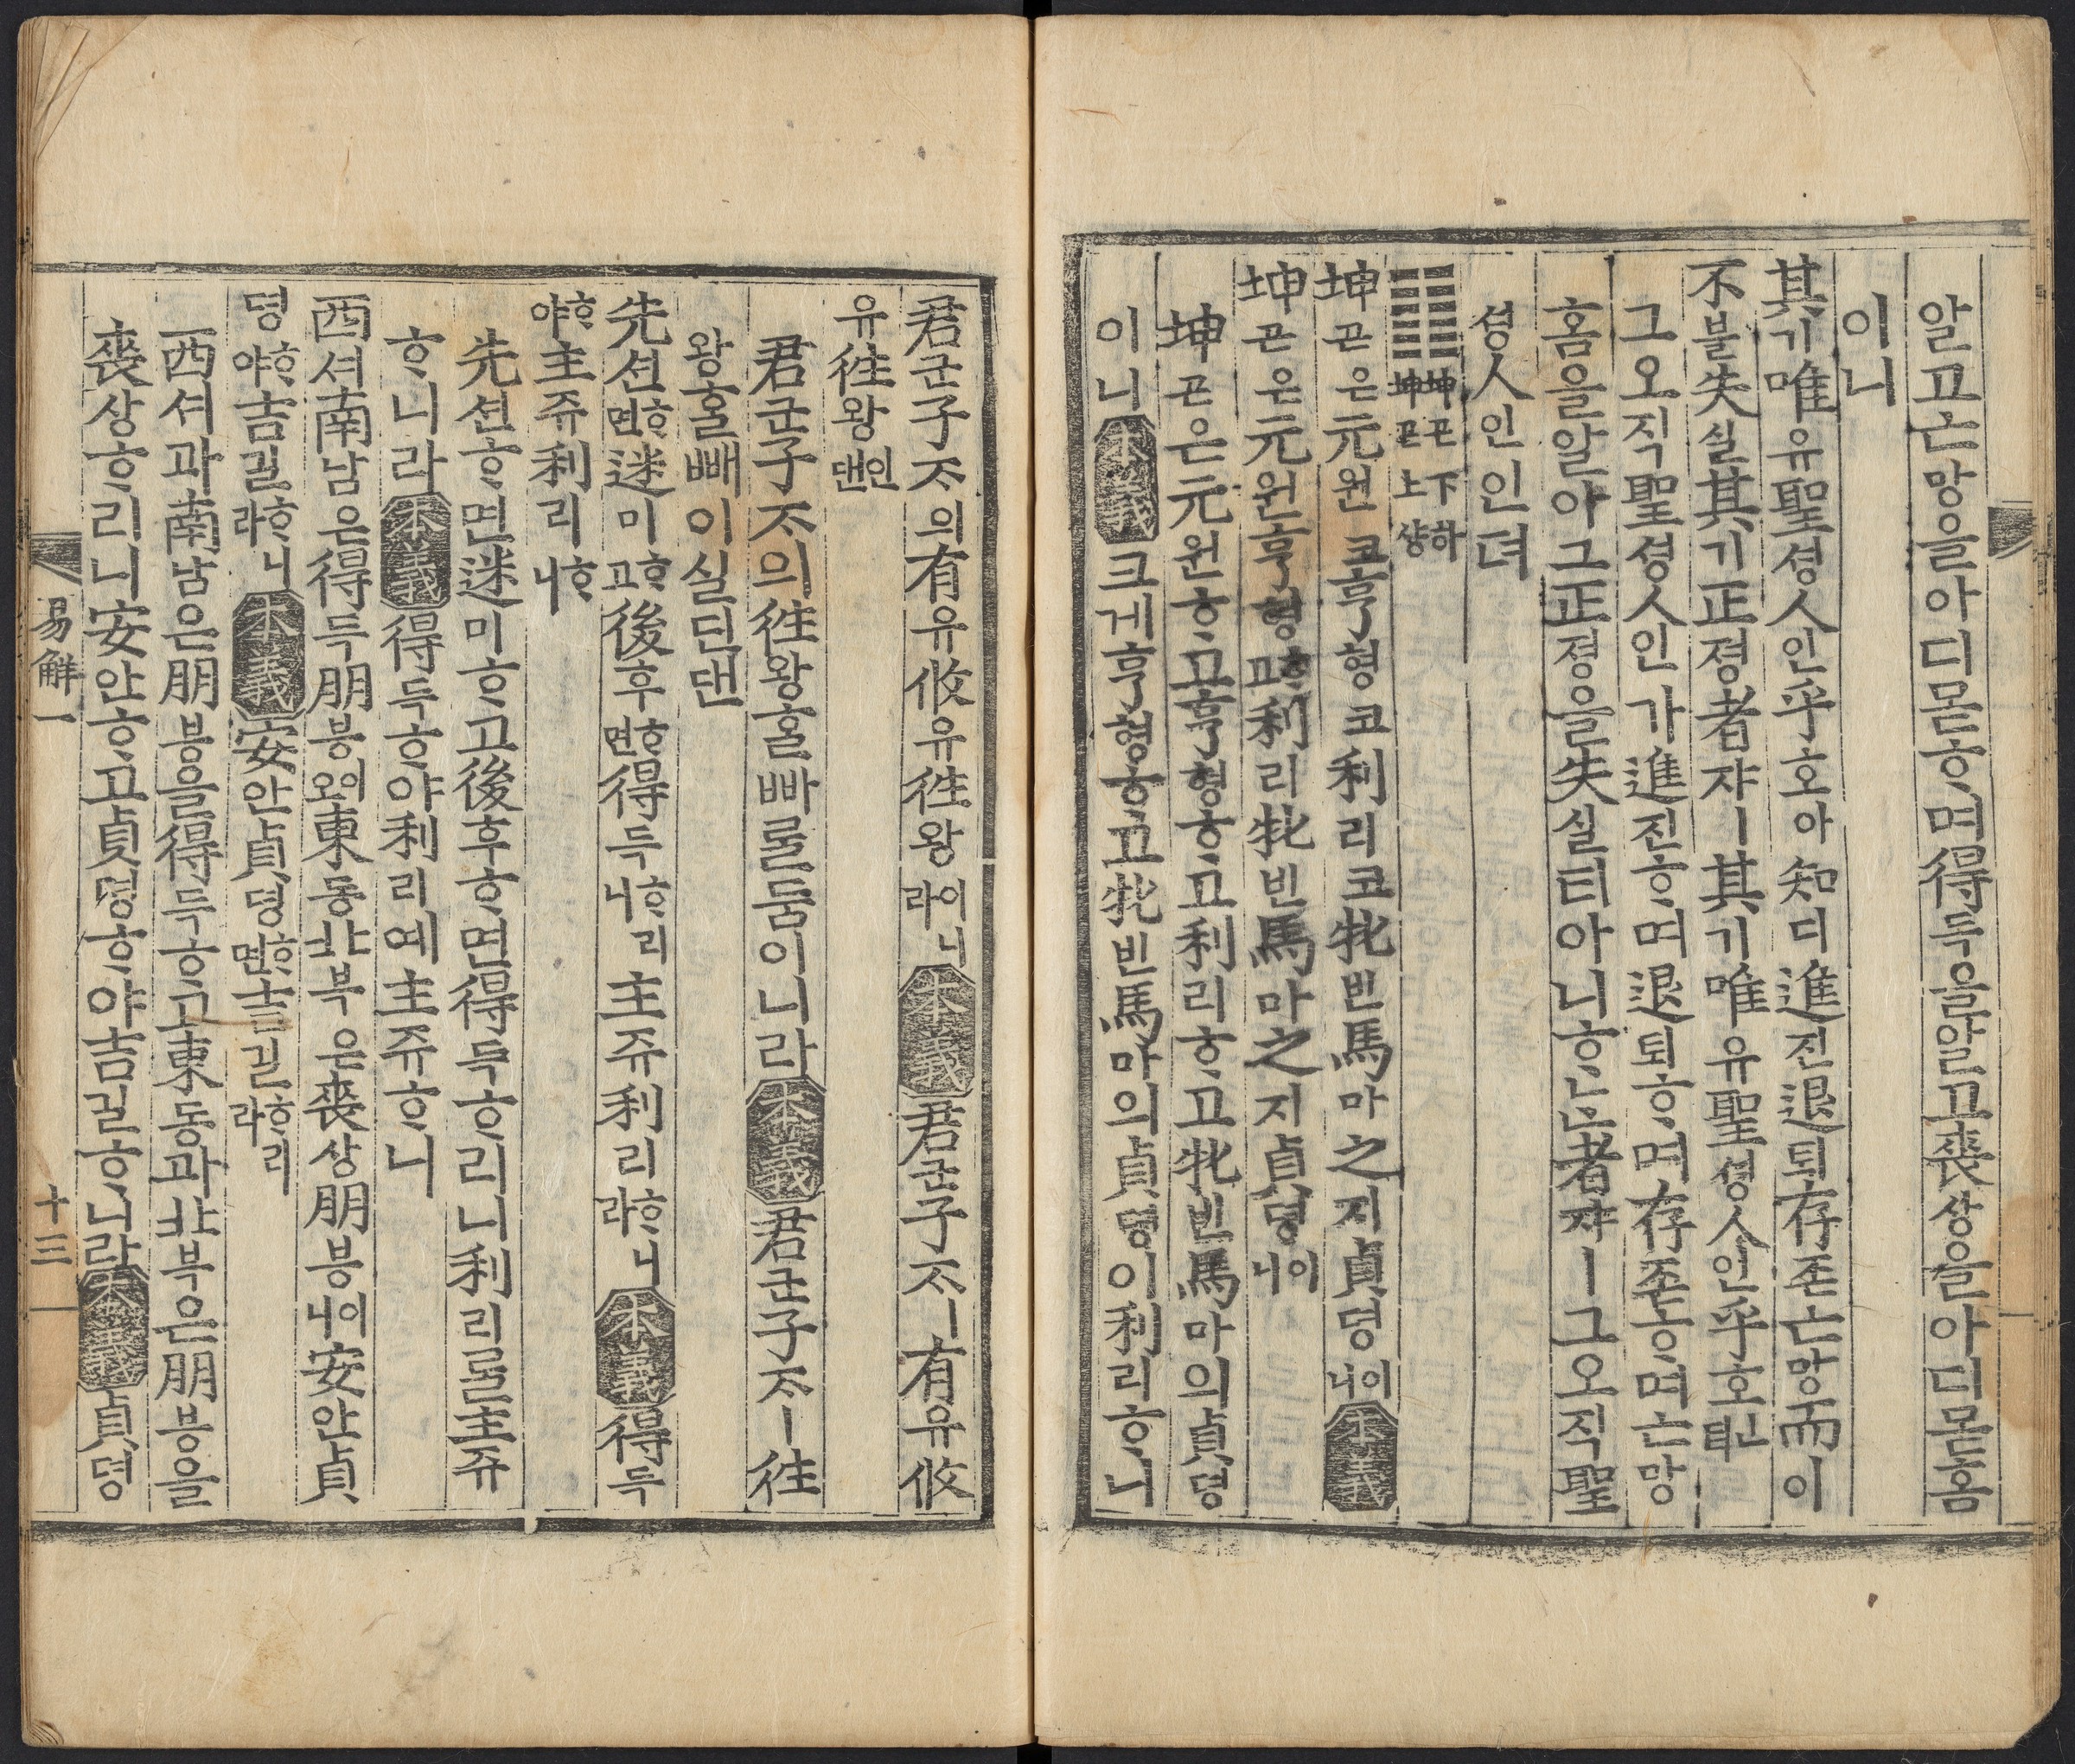 알고亡망을아디몯ᄒᆞ며得득을알고喪상을아디몯홈
이니
其기唯유聖셩人인乎호아知디進진退퇴存존亡망而이
不블失실其기正졍者쟈ㅣ其기唯유聖셩人인乎호ᅟᅵᆫ뎌
그오직聖셩人인가進진ᄒᆞ며退퇴ᄒᆞ며存존ᄒᆞ며亡망
홈을알아그正졍을失실티아니ᄒᆞᄂᆞᆫ者쟈ㅣ그오직聖
셩人인인뎌
䷁坤곤下하坤곤上샹
坤곤은元원코亨형코利리코牝빈馬마之지貞뎡이니本義
坤곤은元원亨형ᄒᆞ고利리牝빈馬마之지貞뎡이니
坤곤은元원ᄒᆞ고亨형ᄒᆞ고利리ᄒᆞ고牝빈馬마의貞뎡
이니本義크게亨형ᄒᆞ고牝빈馬마의貞뎡이利리ᄒᆞ니
君군子ᄌᆞ의有유攸유往왕이니라本義君군子ᄌᆞㅣ有유攸
유往왕인댄
君군子ᄌᆞ의往왕홀빠를둠이니라本義君군子ᄌᆞㅣ往
왕홀빼이실딘댄
先션ᄒᆞ면迷미ᄒᆞ고後후ᄒᆞ면得득ᄒᆞ리니主쥬利리ᄒᆞ니라本義得득
ᄒᆞ야主쥬利리ᄒᆞ니
先션ᄒᆞ면迷미ᄒᆞ고後후ᄒᆞ면得득ᄒᆞ리니利리를主쥬
ᄒᆞ니라本義得득ᄒᆞ야利리예主쥬ᄒᆞ니
西셔南남은得득朋붕이오東동北북은喪상朋붕이니安안貞
뎡ᄒᆞ야吉길ᄒᆞ니라本義安안貞뎡ᄒᆞ면吉길ᄒᆞ리라
西셔과南남은朋붕을得득ᄒᆞ고東동과北북은朋붕을
喪상ᄒᆞ리니安안ᄒᆞ고貞뎡ᄒᆞ야吉길ᄒᆞ니라本義貞뎡
易解一 十三